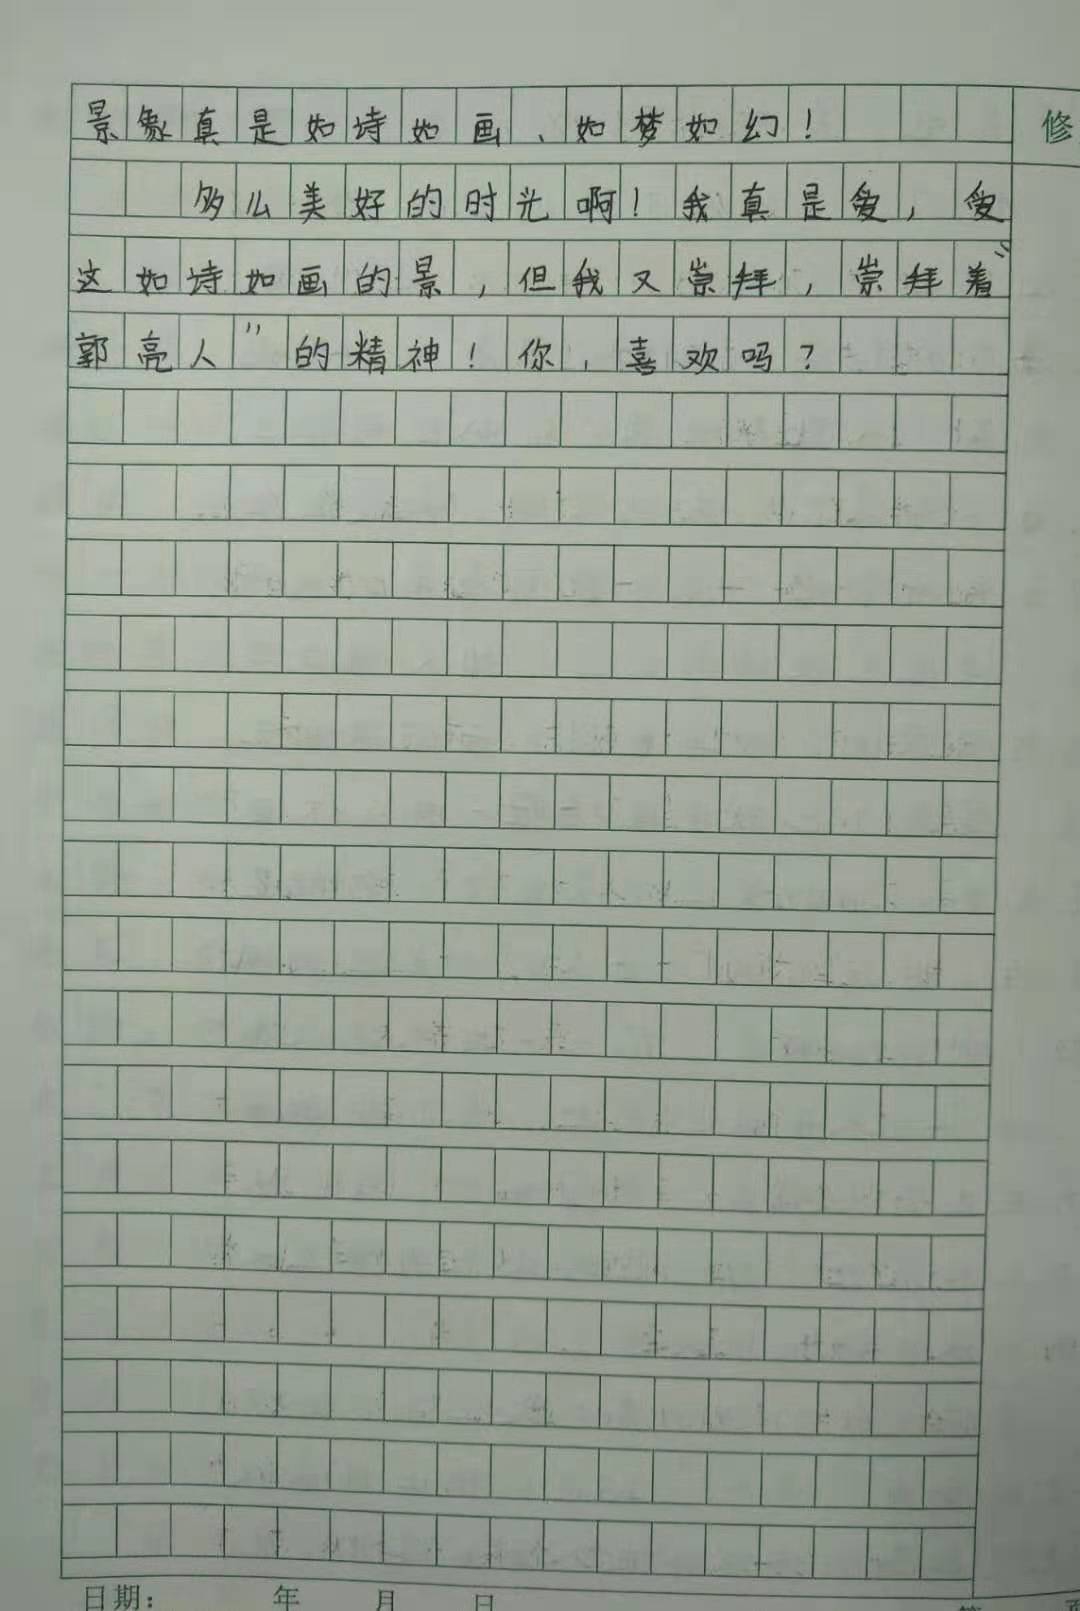 景象真是如诗如画、如梦如幻！
修
多么美好的时光啊！我真是爱，爱
这如诗如画的景，但我又崇拜，崇拜着“
郭亮人”的精神！你，喜欢吗？
日期： 年 月 日